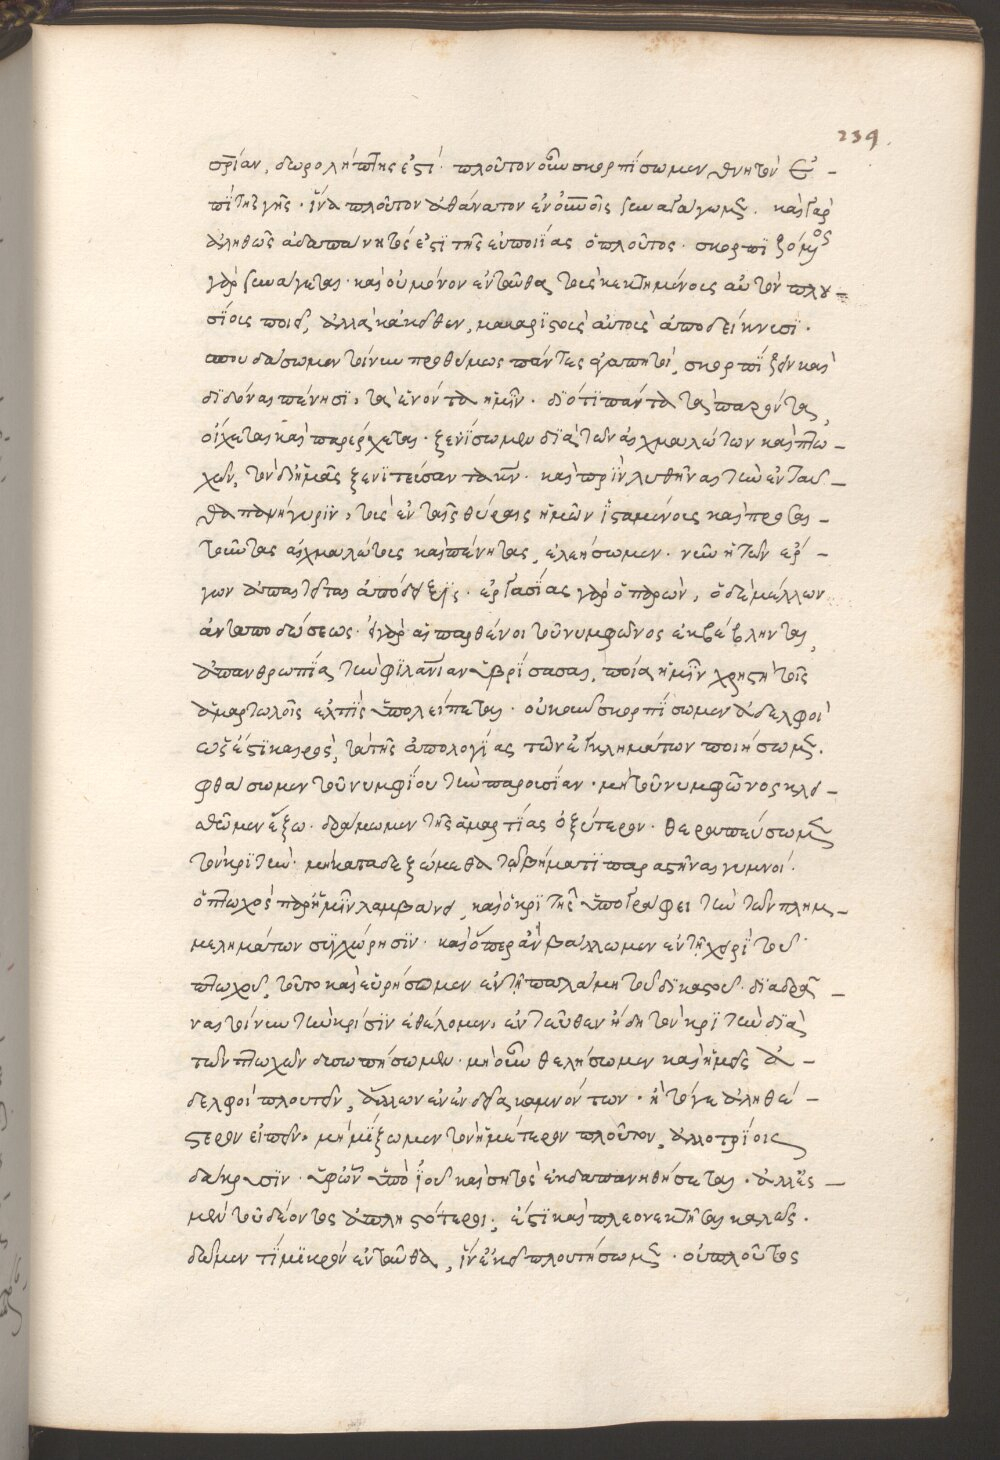 239
σρίαν, δωρολήπτης ἐστί· πλοῦτον οὖν σκορπίσωμεν θνητὸν ἐ-
πὶ τῆς γῆς· ἵνα πλοῦτον ἀθάνατον ἐν οὐνοῖς συναγάγωμεν. καὶ γὰρ
ἀληθῶς ἀδαπάνητός ἐστι τῆς εὐποιΐας ὁ πλοῦτος· σκορπιζόμενος
γὰρ συνάγεται· καὶ οὐ μόνον ἐνταῦθα τοὺς κεκτημένους αὐτὸν πλου-
σίους ποιεῖ, ἀλλὰ κἀκεῖθεν, μακαριστοὺς αὐτοὺς ἀποδείκνυσι·
σπουδάσωμεν τοίνυν προθύμως πάντες ἀγαπητοί, σκορπίζειν καὶ
διδόναι πένησι, τὰ ἐνόντα ἡμῖν· διότι πάντα τὰ παρόντα,
οἴχεται καὶ παρέρχεται· ξενίσωμεν διὰ τῶν αἰχμαλώτων καὶ πτω-
χῶν, τὸν δι' ἡμᾶς ξενιτεύσαντα κν· καὶ πρὶν λυθῆναι τὴν ἐνταῦ-
θα πανήγυριν, τοὺς ἐν ταῖς θύραις ἡμῶν ἱσταμένους καὶ προσαι-
τοῦντας αἰχμαλώτους καὶ πένητας, ἐλεήσωμεν· νῦν ἡ τῶν ἔρ-
γων ἀπαιτεῖται ἀπόδειξις· ἐργασίας γὰρ ὁ παρών, ὁ δὲ μέλλων
ἀνταποδώσεως· εἰ γὰρ αἱ παρθένοι τοῦ νυμφῶνος ἐκβέβληνται,
ἀπανθρωπίᾳ τὴν φιλανίαν ὑβρίσασαι, ποία ἡμῖν χρηστὴ τοῖς
ἁμαρτωλοῖς ἐλπὶς ὑπολείπεται· οὐκοῦν σκορπίσωμεν ἀδελφοὶ
ἕως ἐστι καιρός, τὰ τῆς ἀπολογίας τῶν ἐγκλημάτων ποιήσωμεν.
φθάσωμεν τοῦ νυμφίου τὴν παρουσίαν· μὴ τοῦ νυμφῶνος κλει-
σθῶμεν ἔξω· δράμωμεν τῆς ἁμαρτίας ὀξύτερον· θεραπεύσωμεν
τὸν κριτήν· μὴ καταδεξώμεθα τῷ βήματι παραστῆναι γυμνοί·
ὁ πτωχὸς παρ' ἡμῖν λαμβάνει, καὶ ὁ κριτὴς ὑπογράφει τὴν τῶν πλημ-
μελημάτων συγχώρησιν· καὶ ὅπερ ἂν βάλλωμεν ἐν τῇ χειρὶ τοῦ
πτωχοῦ, τοῦτο καὶ εὑρήσωμεν ἐν τῇ παλάμῃ τοῦ δικαστοῦ· διαδρᾶ-
ναι τοίνυν τὴν κρίσιν ἐθέλομεν, ἐντεῦθεν ἤδη τὸν κριτὴν διὰ
τῶν πτωχῶν δυσωπήσωμεν· μὴ οὖν θελήσωμεν καὶ ἡμεῖς ἀ-
δελφοὶ πλουτεῖν, ἄλλων ἐν ἐνδείᾳ καμνόντων· ἢ τό γε ἀληθέ-
στερον εἰπεῖν, μὴ μίξωμεν τὸν ἡμέτερον πλοῦτον, ἀλλοτρίοις
δάκρυσιν· ὑφ' ὧν ὑπὸ ἰοῦ καὶ σητὸς ἐκδαπανηθήσεται· ἀλλ' ἐσ-
μὲν τοῦ δέοντος ἀπληστότεροι, ἔστι καὶ πλεονεκτῆσαι καλῶς·
δῶμεν τι μικρὸν ἐνταῦθα, ἵν' ἐκεῖ πλουτήσωμεν· οὐ πλοῦτος